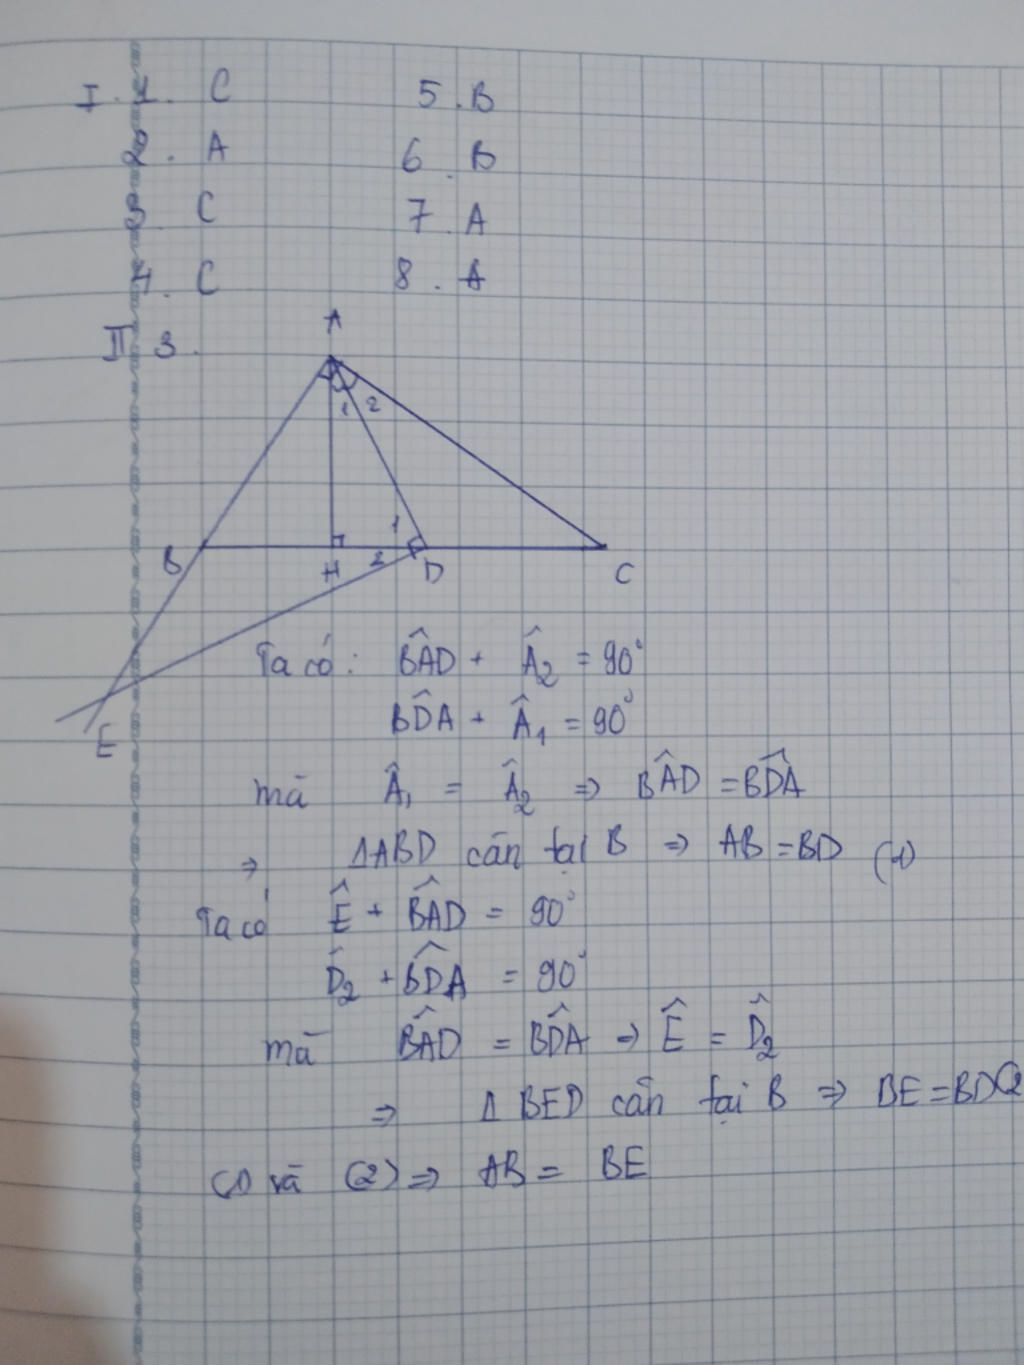 I. 1. C 5. B
2. A 6. B
3. C 7. A
4. C 8. A
II 3.
A
1 2
1
B H 2 D C
E
Ta có: BÂD + Â₂ = 90°
BD̂A + Â₁ = 90°
mà Â₁ = Â₂ => BÂD = BD̂A
=> ΔABD cân tại B => AB = BD (1)
Ta có Ê + BÂD = 90°
D̂₂ + BD̂A = 90°
mà BÂD = BD̂A => Ê = D̂₂
=> Δ BED cân tại B => BE = BD (2
(1) và (2) => AB = BE